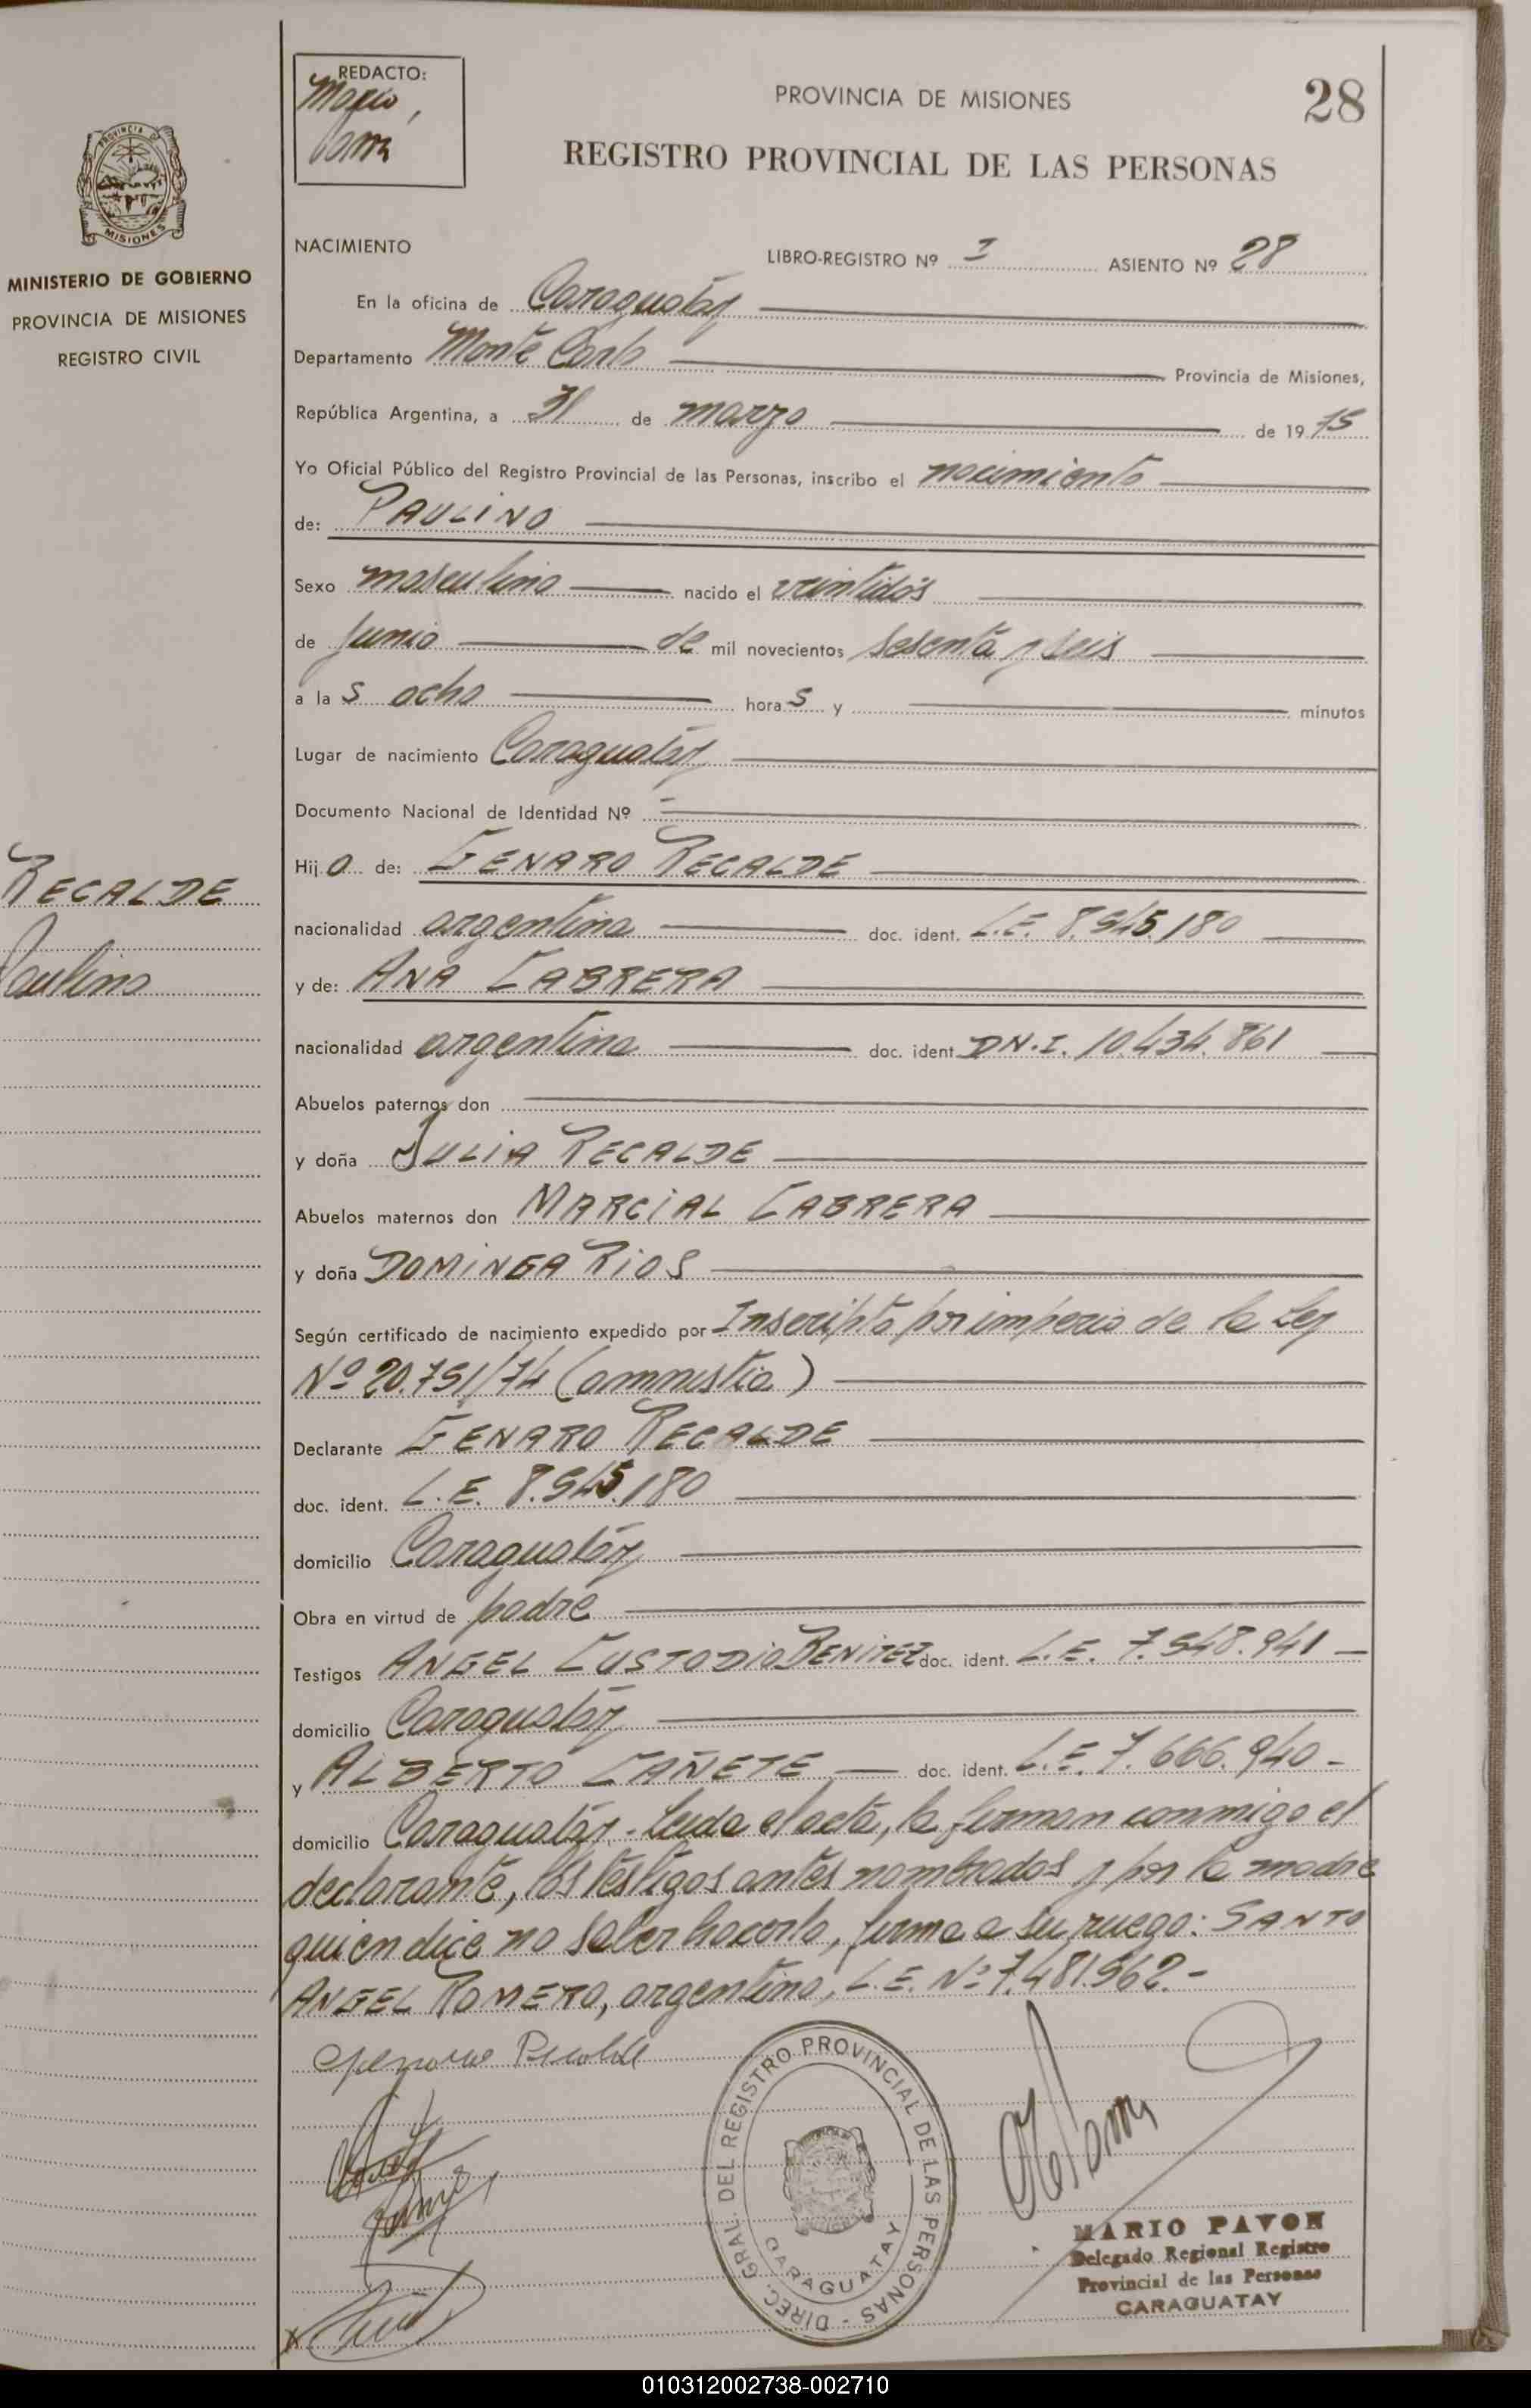 REDACTO:
PROVINCIA DE MISIONES
28
REGISTRO PROVINCIAL DE LAS PERSONAS
PROVINCIA DE
MISIONES
MINISTERIO DE GOBIERNO
PROVINCIA DE MISIONES
REGISTRO CIVIL
NACIMIENTO LIBRO-REGISTRO Nº I ASIENTO Nº 28
En la oficina de Caraguatáy
Departamento Monte Carlo Provincia de Misiones,
República Argentina, a 31 de marzo de 1975
Yo Oficial Público del Registro Provincial de las Personas, inscribo el nacimiento
de: PAULINO
Sexo masculino nacido el veintidós
de junio de mil novecientos sesenta y seis
a las ocho horas y minutos
Lugar de nacimiento Caraguatáy
Documento Nacional de Identidad Nº -
RECALDE
Paulino
Hijo de: GENARO RECALDE
nacionalidad argentina doc. ident. L.E. 8.545.180
y de: ANA CABRERA
nacionalidad argentina doc. ident. D.N.I. 10.434.861
Abuelos paternos don
y doña JULIA RECALDE
Abuelos maternos don MARCIAL CABRERA
y doña DOMINGA RIOS
Según certificado de nacimiento expedido por Inscripto por imperio de la Ley
Nº 20.751/74 (amnistia)
Declarante GENARO RECALDE
doc. ident. L.E. 8.545.180
domicilio Caraguatáy
Obra en virtud de padre
Testigos ANGEL CUSTODIO BENITEZ doc. ident. L.E. 7.548.941 -
domicilio Caraguatáy
y ALBERTO CAÑETE doc. ident. L.E. 7.666.940 -
domicilio Caraguatáy.- Leida el acta, la firman conmigo el
declarante, los testigos antes nombrados y por la madre
quien dice no saber hacerlo, firma a su ruego: SANTO
ANGEL ROMERO, argentino, L.E. Nº 7.481.562.-
Genaro Recalde
DIREC. GRAL. DEL REGISTRO PROVINCIAL DE LAS PERSONAS -
CARAGUATAY
MARIO PAVON
Delegado Regional Registro
Provincial de las Personas
CARAGUATAY
010312002738-002710